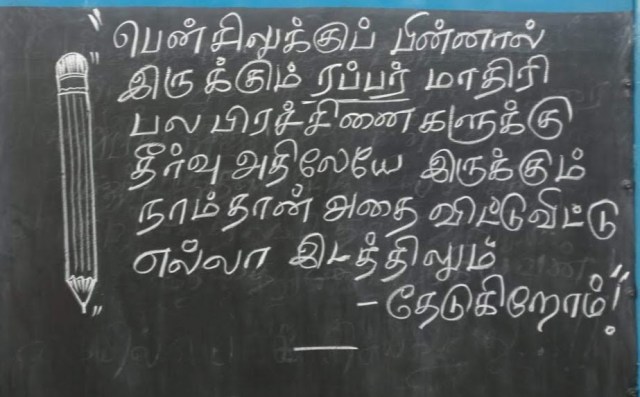 " பென்சிலுக்குப் பின்னால்
இருக்கும் ரப்பர் மாதிரி
பல பிரச்சினைகளுக்கு
தீர்வு அதிலேயே இருக்கும்
நாம்தான் அதை விட்டுவிட்டு
எல்லா இடத்திலும்
- தேடுகிறோம்! "